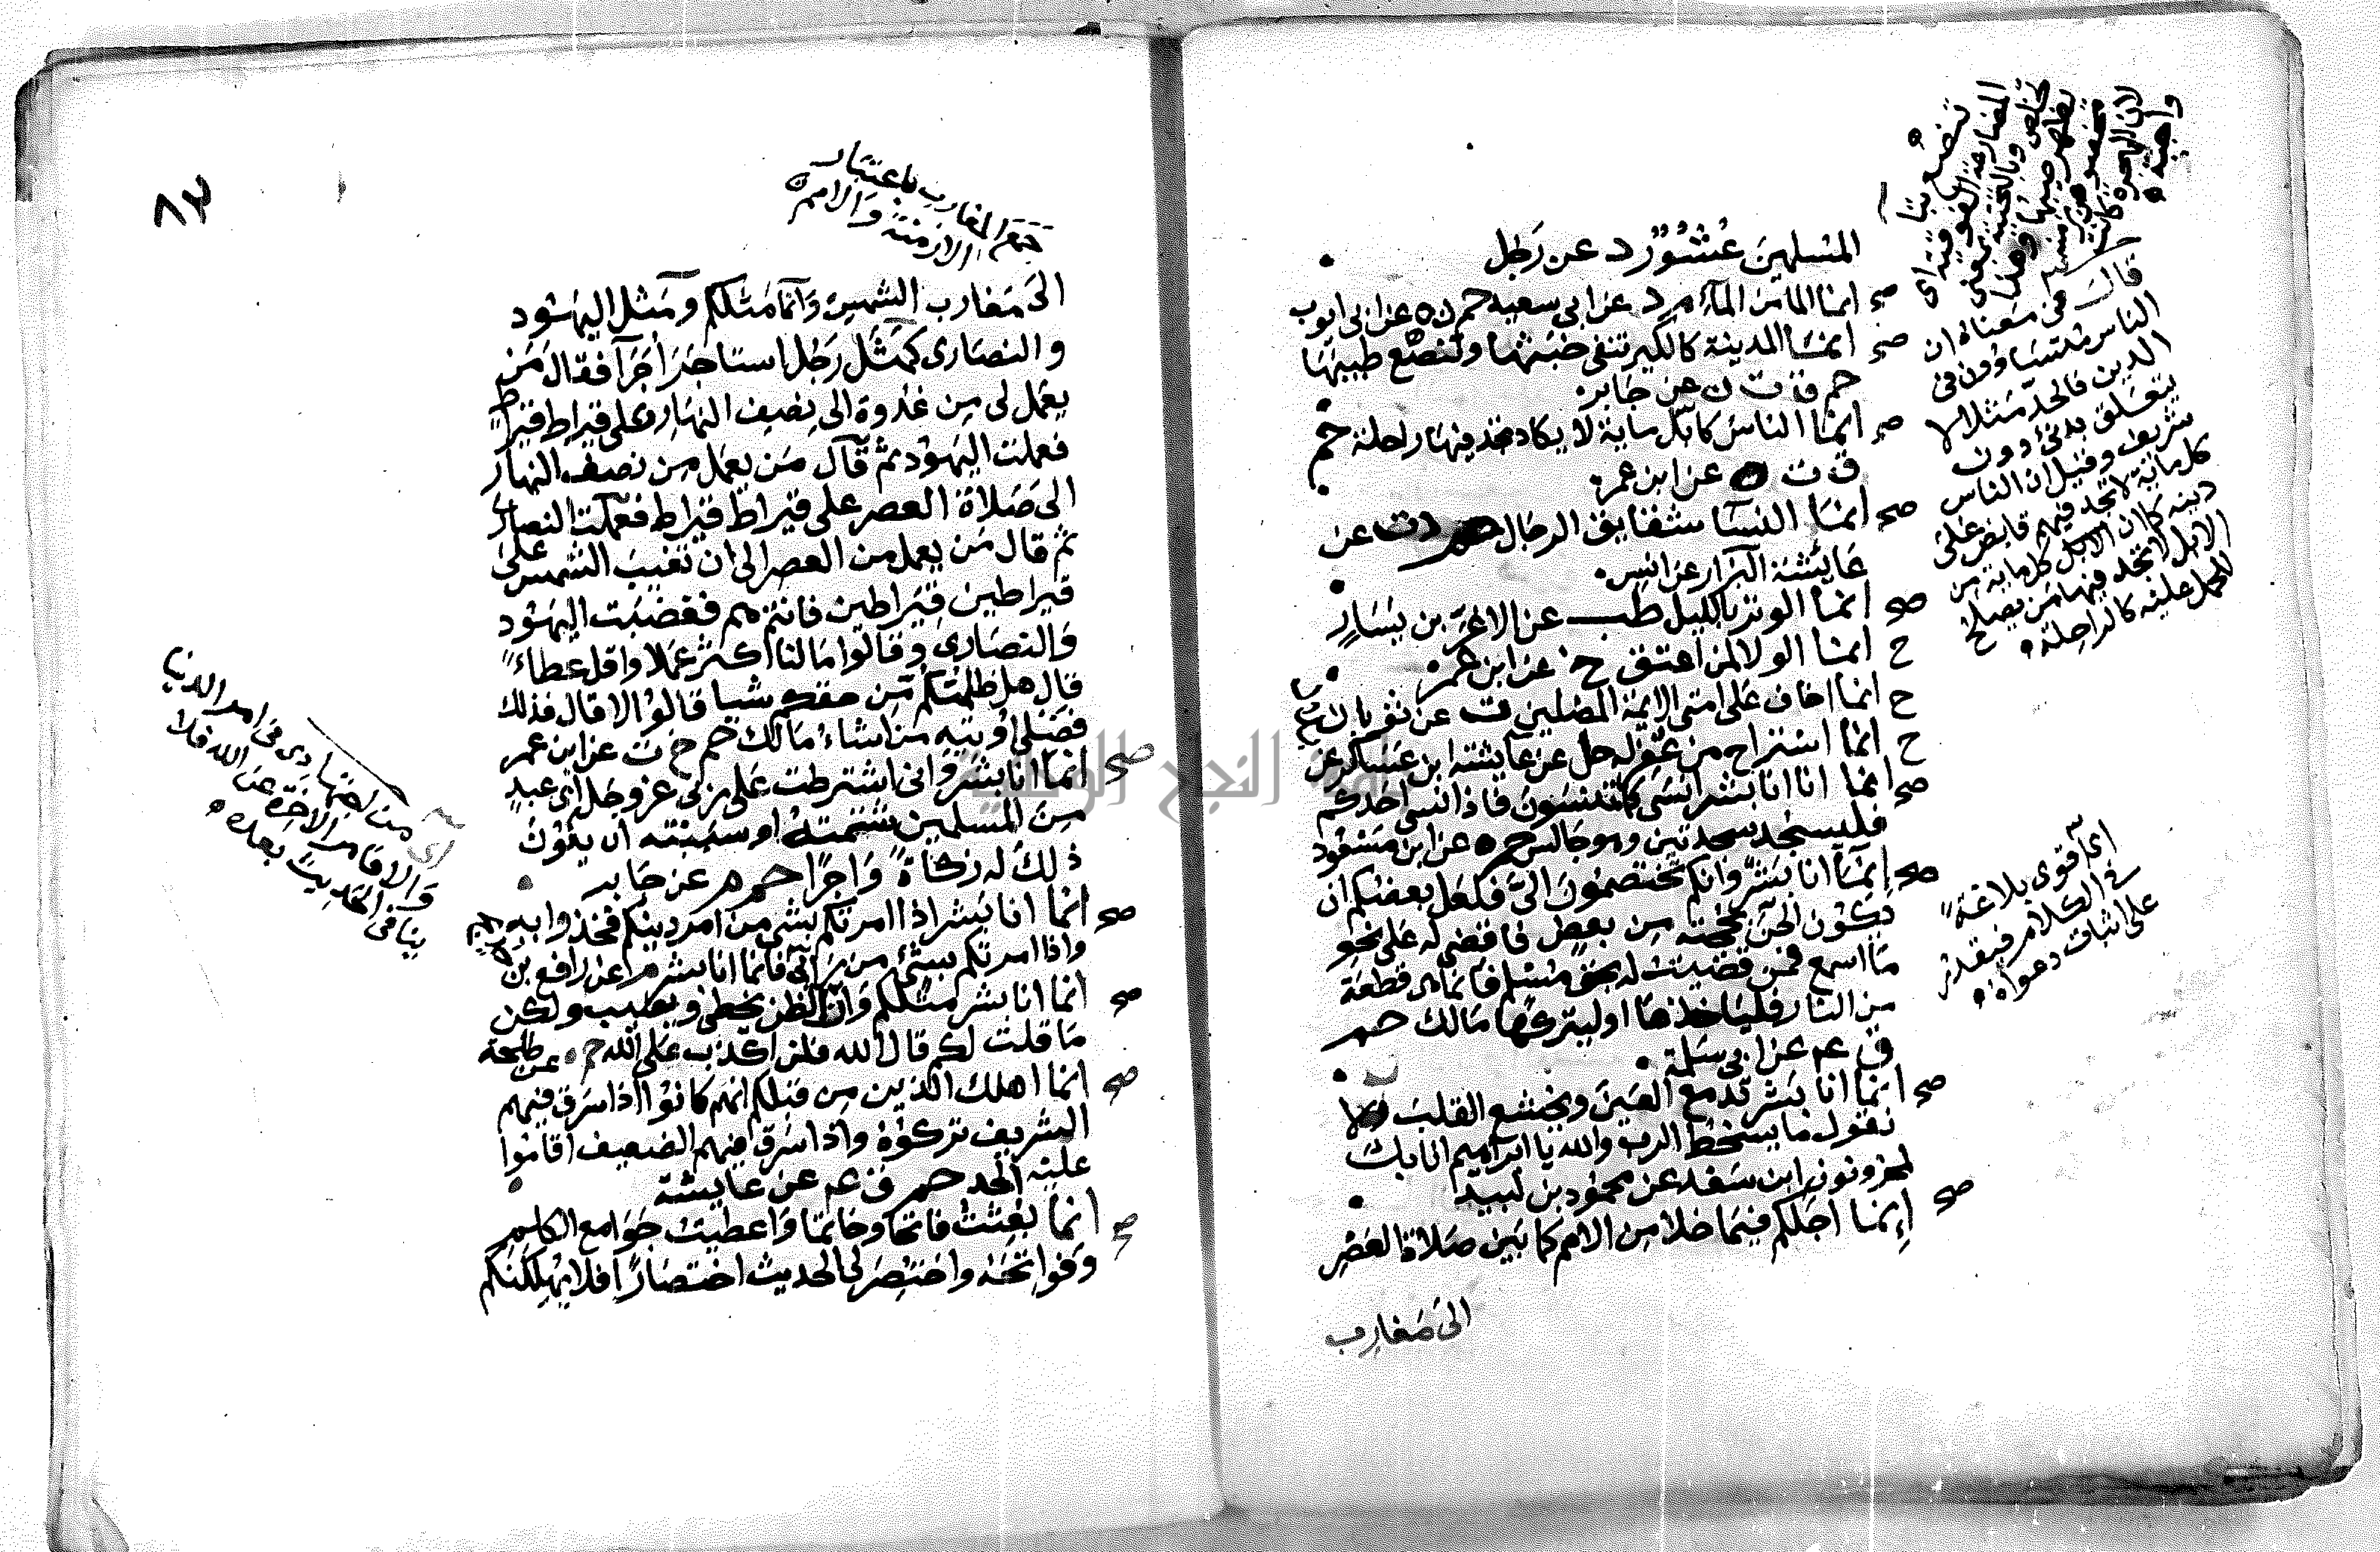 المسلمين عُشُورٌ د عن رَجل
صح انما الماء من الماء م د عن ابى سعيد حم ن ه عن ابى ايوب
صح انما المدينة كالكير تنفى خبثها وتنصع طيبها
حم ق ت ن عن جابر
صح انما الناس كابل ماية لا يكاد تجد فيها راحلة حم
ق ت ه عن ابن عمر
صح انما النسآ شقايق الرجال حم د ت عن
عايشة البزار عن انس
صح انما الوتر بالليل طب عن الاغر بن يسار
ح انما الولا لمن اعتق خ عن ابن عمر
ح انما اخاف على امتى الايمة المضلين ت عن ثوبان
ح انما استراح من غفر له حل عن عايشة ابن عساكر عن
صح انما انا بشر انسى كما تنسون فاذا نسى احدكم
فليسجد سجدتين وهو جالس حم ه عن ابن مسعود
صح إنما انا بشر وانكم تختصمون الىّ فلعل بعضكم ان
يكون الحن بحجته من بعض فاقضى له على نحو
ما اسمع فمن قضيت له بحق مسلم فانما هى قطعة
من النار فلياخذها او ليتركها مالك حم
ق عه عن ام سلمة
صح انما انا بشر تدمع العين ويخشع القلب ولا
نقول ما يسخط الرب والله يا ابراهيم انا بك
لمحزونون ابن سعد عن محمود بن لبيد
صح إنما اجلكم فيما خلا من الامم كما بين صلاة العصر
الى مغارب
تنصع بتا
قال فى معناه ان
الناس متساوون فى
الدين فالحد مثلا لا
يتعلق بدنئ دون
شريف وقيل ان الناس
كل ماية لا تجد فيهم قايض على
دينه كما ان الابل كل ماية من
الابل لا تجد فيها من يصلح
للحمل عليه كالراحلة
اى اقوى بلاغة
فى الكلام فيقدر
على اثبات دعواه
٨٣
جمع المغارب باعتبار
الازمنة والامم
الى مغارب الشمس وانما مثلكم ومثل اليهود
والنصارى كمثل رجل استاجر اجرآ فقال من
يعمل لى من غدوة الى نصف النهار على قيراط قيراط
فعملت اليهود ثم قال من يعمل من نصف النهار
الى صلاة العصر على قيراط قيراط فعملت النصارى
ثم قال من يعمل من العصر الى ان تغيب الشمس على
قيراطين قيراطين فانتم هم فغضبت اليهود
والنصارى وقالوا مالنا اكثر عملا واقل عطاء
قال هل ظلمتكم من حقكم شيا قالوا لا قال فذلك
فضلى اوتيه من اشاء مالك حم خ ت عن ابن عمر
صح انما انا بشر وانى اشترطت على ربى عز وجل اى عبد
من المسلمين شتمته او سببته ان يكون
ذلك له زكاة واجرا حم م عن جابر
صح انما انا بشر اذا امرتكم بشى من امر دينكم فخذوا به
واذا امرتكم بشئ من رأى فانما انا بشر م عن رافع بن خديج
صح انما انا بشر مثلكم وان الظن يخطى ويصيب ولكن
ما قلت لكم قال الله فلن اكذب على الله حم ه عن طلحة
صح انما اهلك الذين من قبلكم انهم كانوا اذا سرق فيهم
الشريف تركوه واذا سرق فيهم الضعيف اقاموا
عليه الحد حم ق عه عن عايشة
صح انما بعثت فاتحا وخاتما واعطيت جوامع الكلم
وفواتحه واختصر لى الحديث اختصارا فلا يهلكنكم
اى من اجتهادى فى امر الدنيا
والا فامر الاخرة عن الله فلا
ينافى الحديث بعده